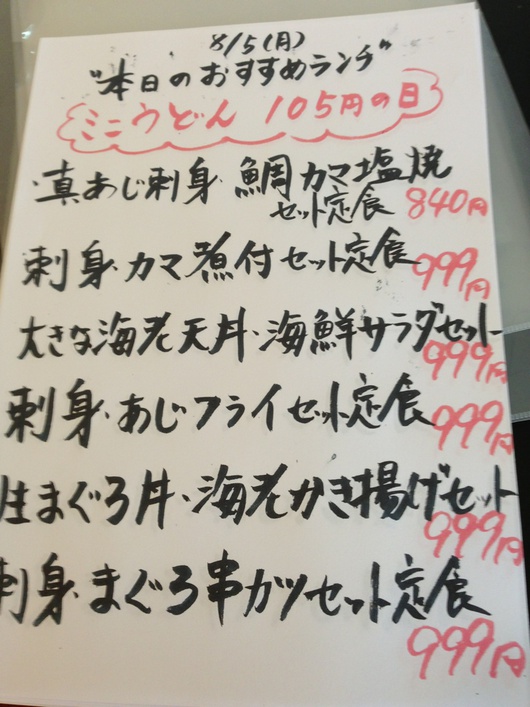 8/5(月)
"本日のおすすめランチ"
ミニうどん 105円の日
・真あじ刺身・鯛カマ塩焼
セット定食 840円
刺身・カマ煮付セット定食
999円
大きな海老天丼・海鮮サラダセット
999円
刺身・あじフライセット定食
999円
生まぐろ丼・海老かき揚げセット
999円
刺身・まぐろ串カツセット定食
999円